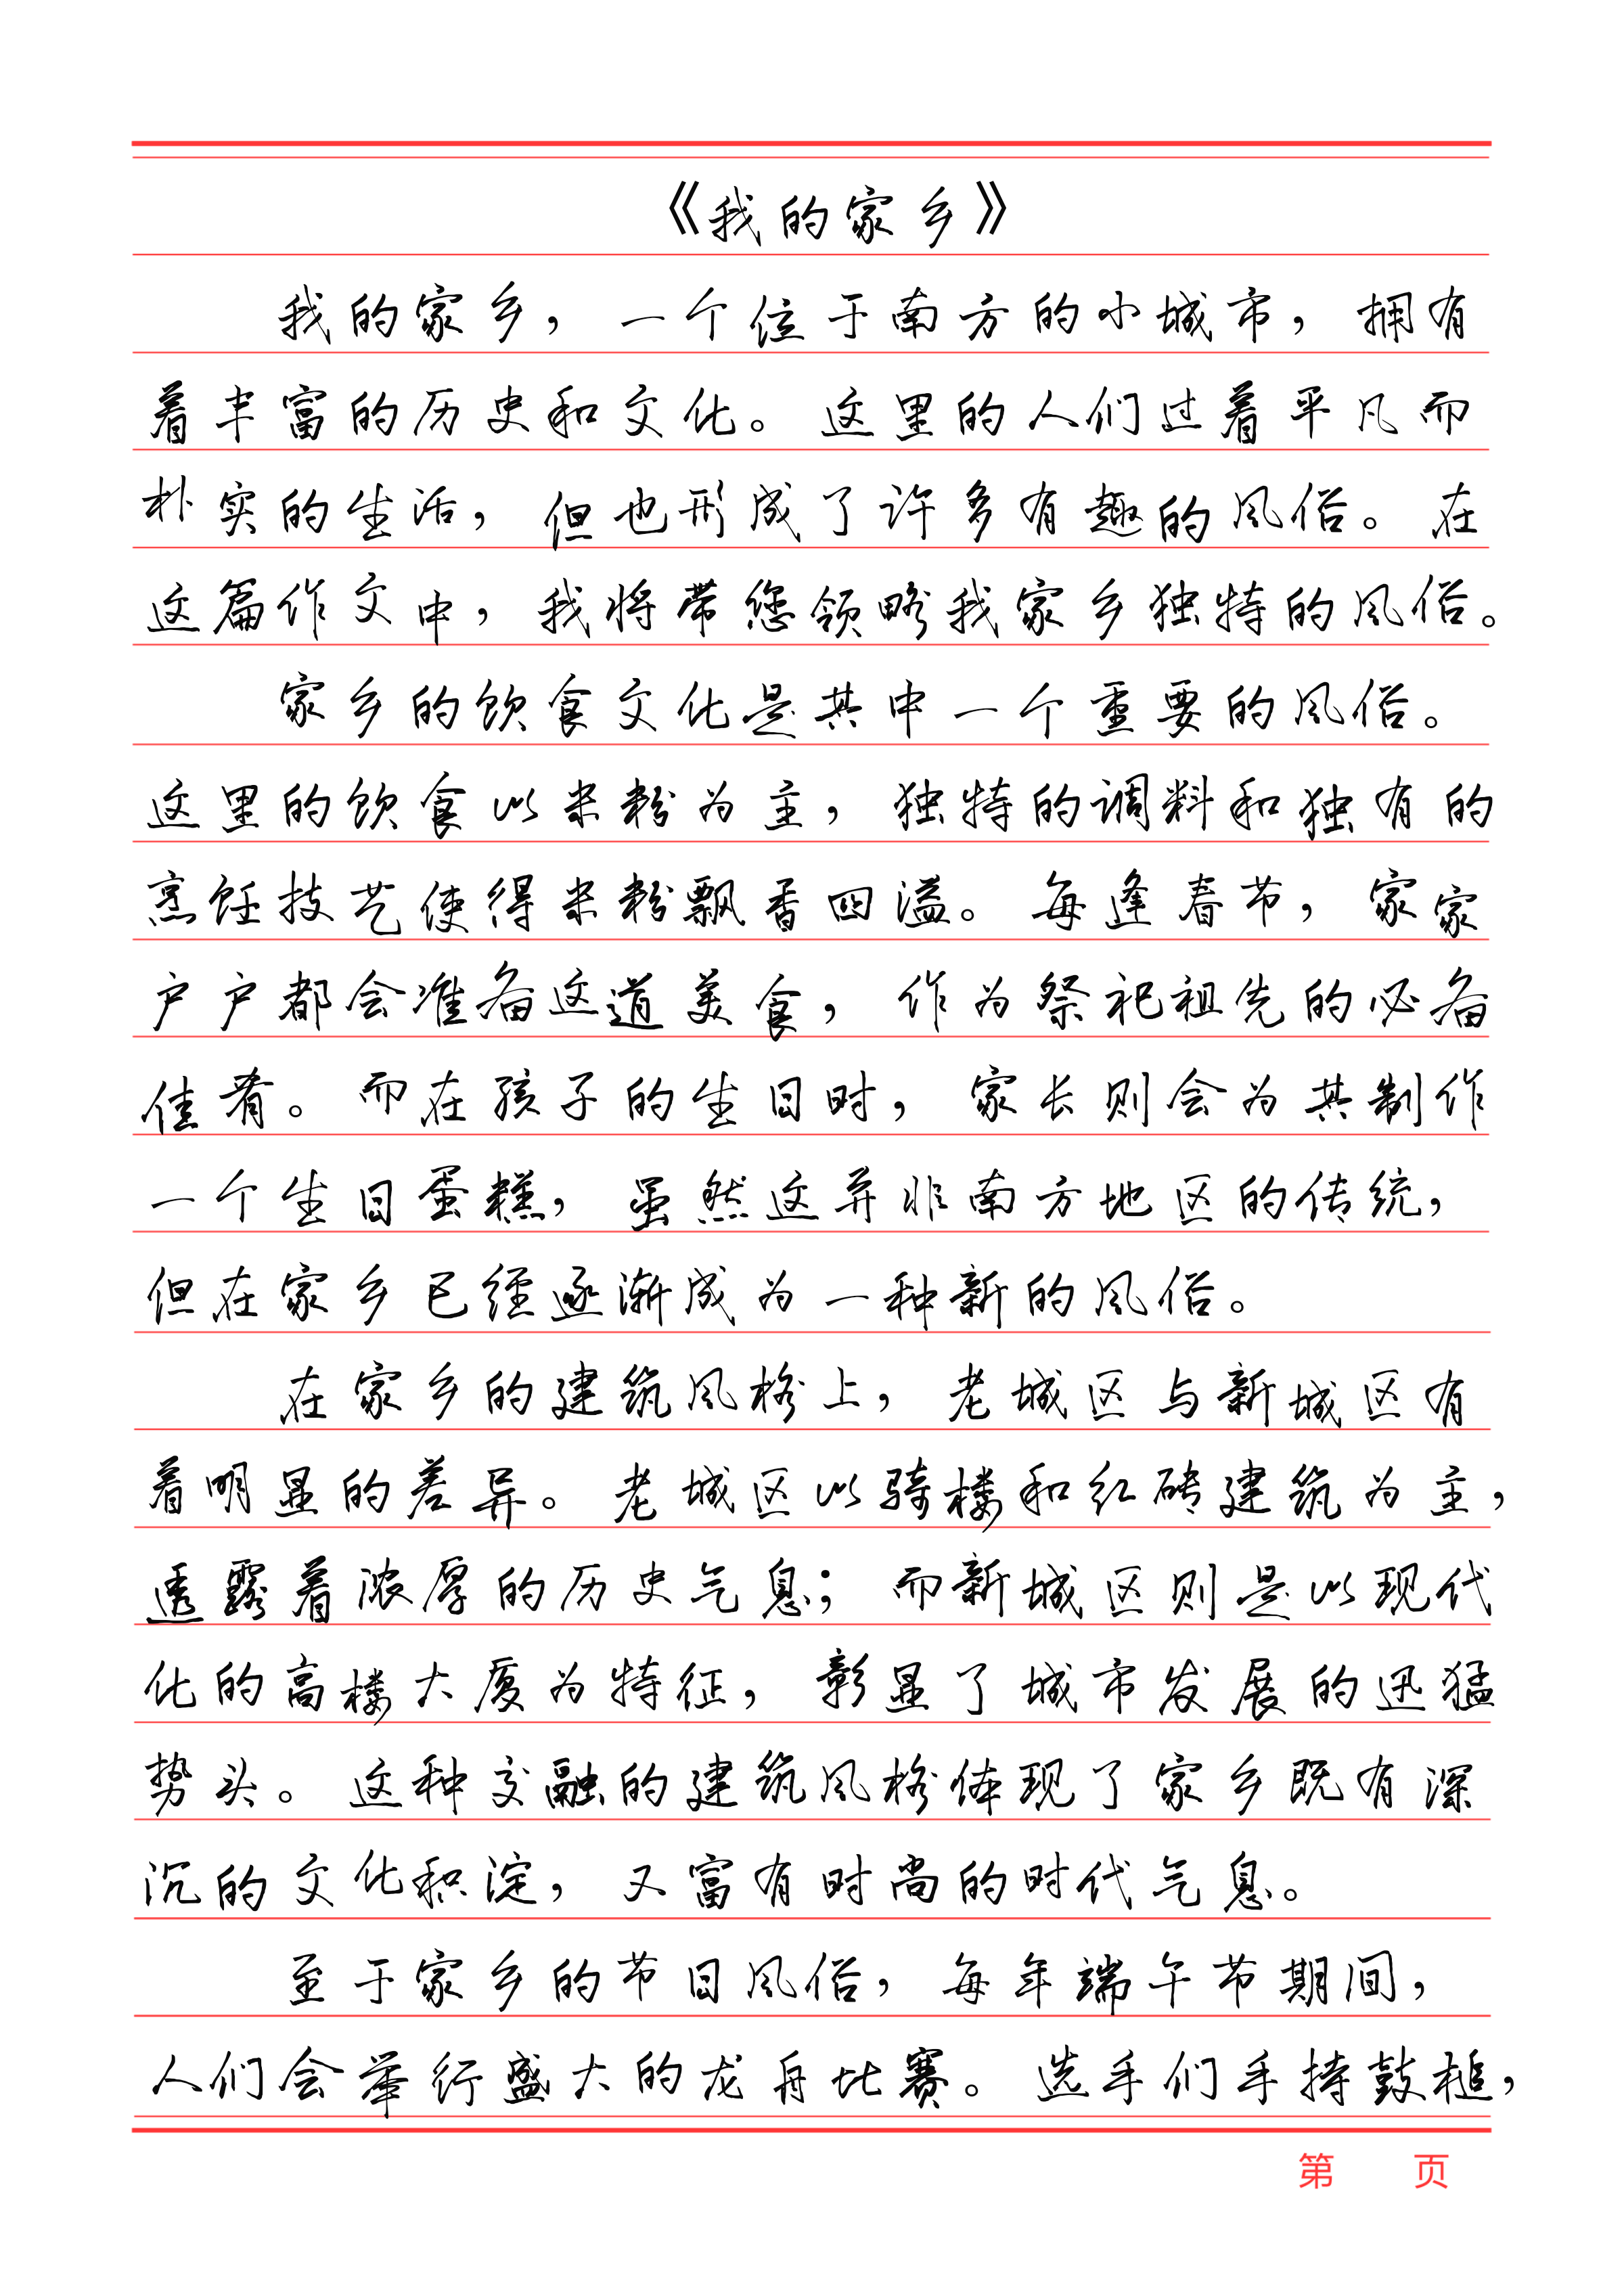 《我的家乡》
我的家乡，一个位于南方的小城市，拥有
着丰富的历史和文化。这里的人们过着平凡而
朴实的生活，但也形成了许多有趣的风俗。在
这篇作文中，我将带您领略我家乡独特的风俗。
家乡的饮食文化是其中一个重要的风俗。
这里的饮食以米粉为主，独特的调料和独有的
烹饪技艺使得米粉飘香四溢。每逢春节，家家
户户都会准备这道美食，作为祭祀祖先的必备
佳肴。而在孩子的生日时，家长则会为其制作
一个生日蛋糕，虽然这并非南方地区的传统，
但在家乡已经逐渐成为一种新的风俗。
在家乡的建筑风格上，老城区与新城区有
着明显的差异。老城区以骑楼和红砖建筑为主，
透露着浓厚的历史气息；而新城区则是以现代
化的高楼大厦为特征，彰显了城市发展的迅猛
势头。这种交融的建筑风格体现了家乡既有深
沉的文化积淀，又富有时尚的时代气息。
至于家乡的节日风俗，每年端午节期间，
人们会举行盛大的龙舟比赛。选手们手持鼓槌，
第 页